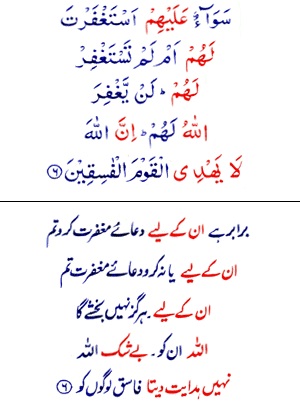 سَوَآءٌ عَلَيْهِمْ اَسْتَغْفَرْتَ
لَهُمْ اَمْ لَمْ تَسْتَغْفِرْ
لَهُمْ ؕ لَنْ يَّغْفِرَ
اللّٰهُ لَهُمْ ؕ اِنَّ اللّٰهَ
لَا يَهْدِى الْقَوْمَ الْفٰسِقِيْنَ ۶
برابر ہے ان کے لیے دعائے مغفرت کرو تم
ان کے لیے یا نہ کرو دعائے مغفرت تم
ان کے لیے۔ ہرگز نہیں بخشے گا
اللہ ان کو۔ بے شک اللہ
نہیں ہدایت دیتا فاسق لوگوں کو ۶